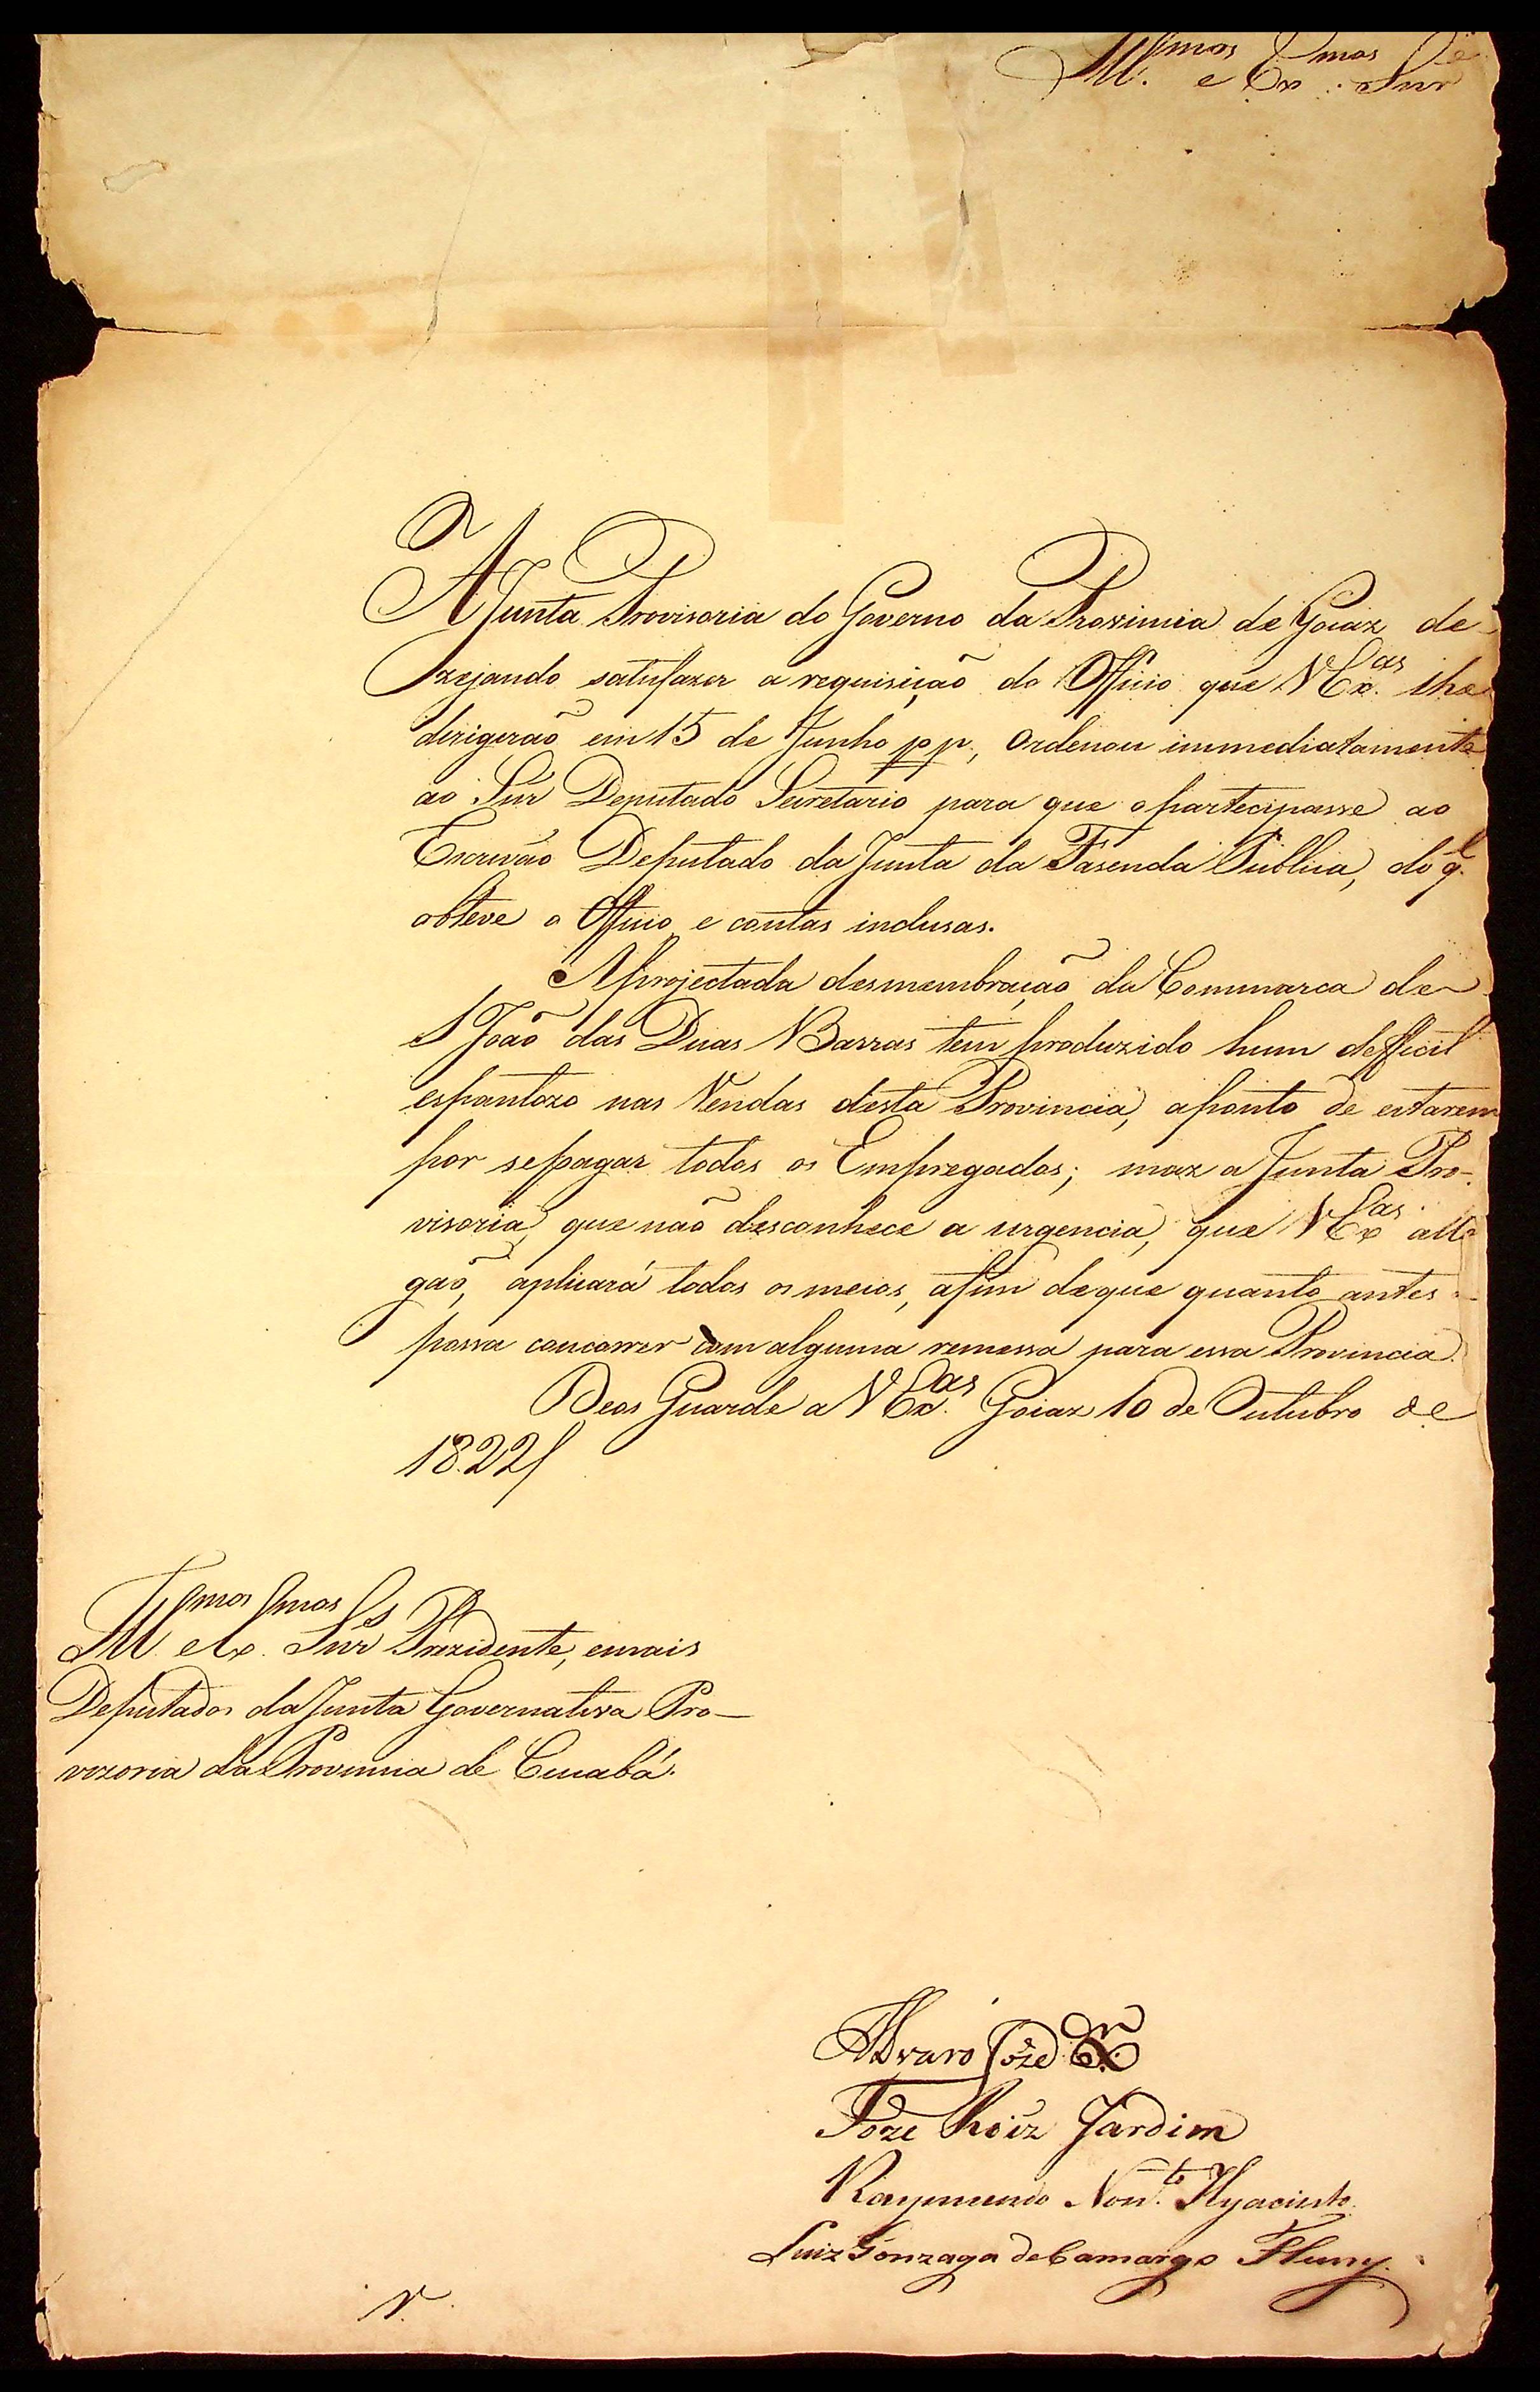 Ill.mos e Ex.mos Snr.es
A Junta Provisoria do Governo da Provincia de Goiaz de-
zejando satisfazer a requisição do Officio que V Ex.as lhe
dirigerão em 15 de Junho pp., Ordenou immediatamente
ao Snr Deputado Secretario para que o partecipasse ao
Escrivão Deputado da Junta da Fasenda Publica, do q.l
obteve o Officio e contas inclusas.
A projectada desmembração da Commarca de
S João das Duas Barras tem produzido hum defficit
espantozo nas Rendas desta Provincia, aponto de estarem
por se pagar todos os Empregados; maz a Junta Pro-
visoria, que não desconhece a urgencia, que V Ex.as alle
gão, aplicará todos os meios, afim deque quanto antes
possa concorrer com alguma remessa para essa Provincia.
Deos Guarde a V Ex.as Goiaz 10 de Outubro de
1822
Ill.mos e Ex.mos Snr.es Prezidente, emais
Deputados da Junta Governativa Pro-
vezoria da Provincia de Cuiabá.
Alvaro José X.er
Joze Roiz Jardim
Raymundo Non.to Hyacinto
Luiz Gonzaga de Camargo Fleury.